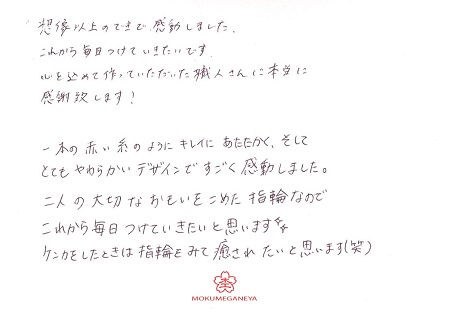 想像以上のできで、感動しました。
これから毎日つけていきたいです。
心を込めて作っていただいた職人さんに本当に
感謝致します！
一本の赤い糸のようにキレイにあたたかく、そして
とてもやわらかいデザインですごく感動しました。
二人の大切なおもいをこめた指輪なので
これから毎日つけていきたいと思います
ケンカをしたときは指輪をみて癒されたいと思います(笑)
MOKUMEGANEYA